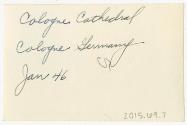 Cologne Cathedral
Cologne Germany
Jan 46
2015.69.7